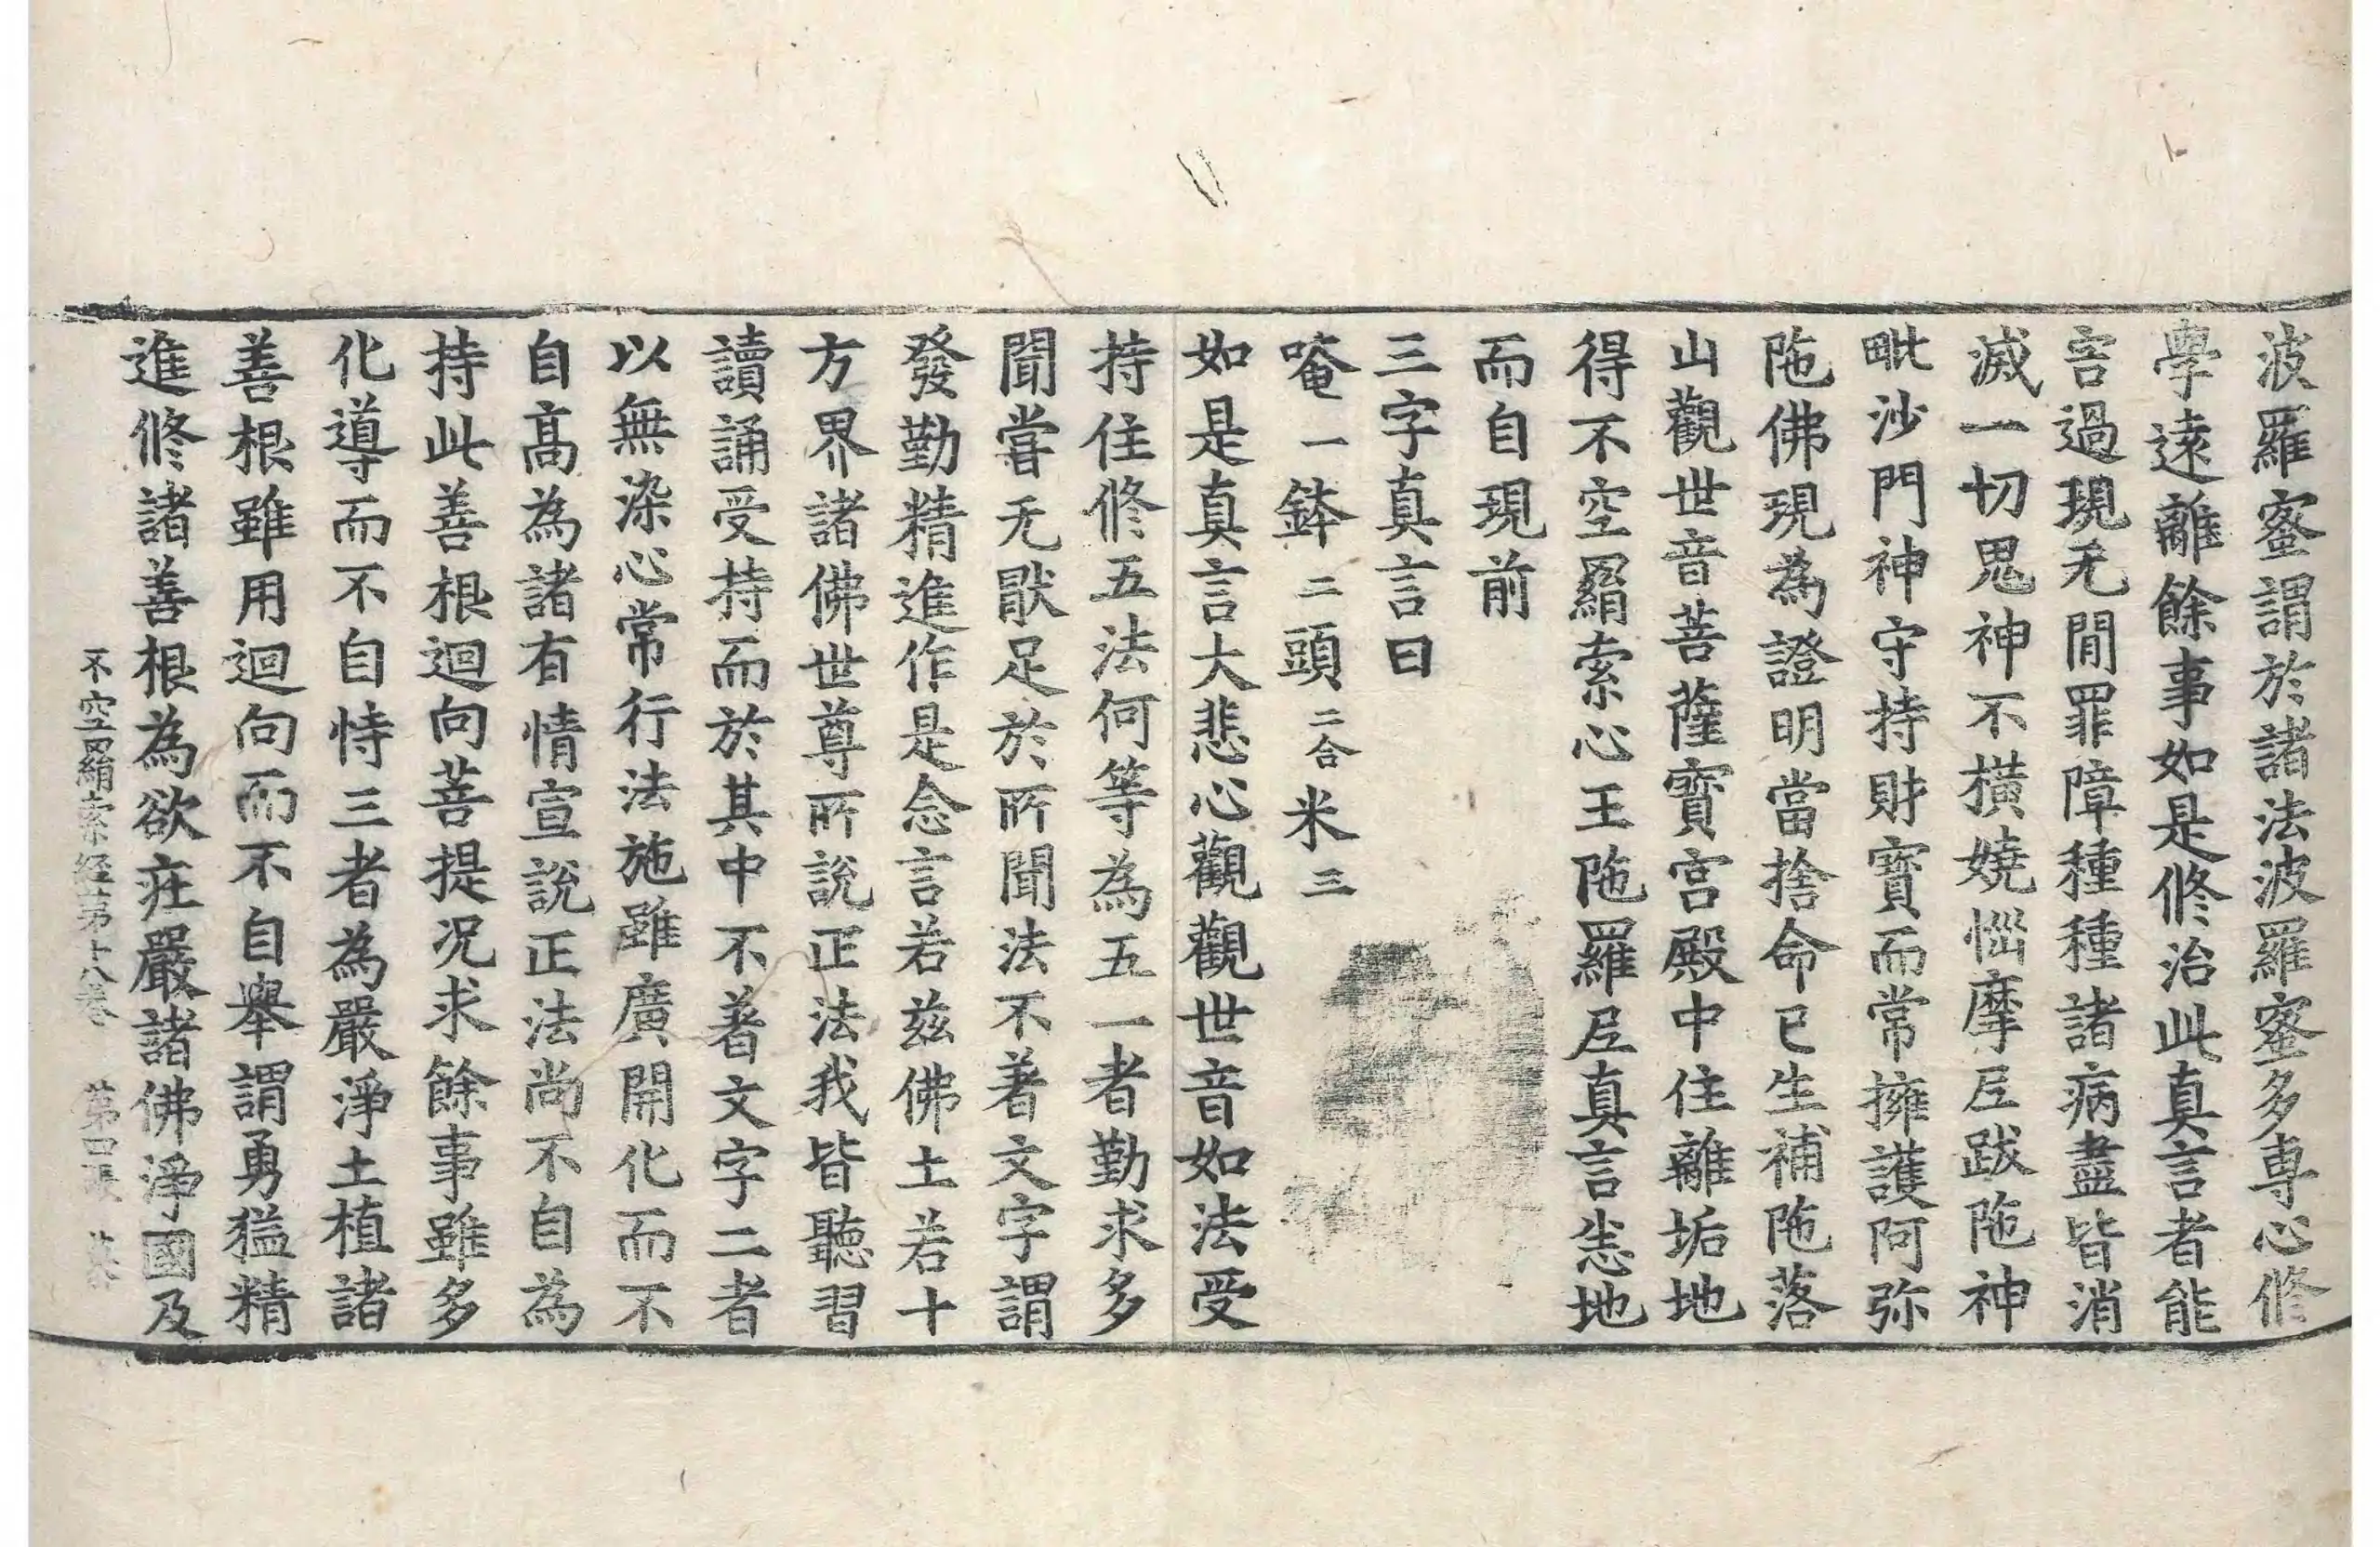 波羅蜜謂於諸法波羅蜜多專心修
學遠離餘事如是修治此真言者能
害過現无間罪障種種諸病盡皆消
滅一切鬼神不橫嬈惱摩尼跋陁神
毗沙門神守持財寶而常擁護阿弥
陁佛現為證明當捨命已生補陁落
山觀世音菩薩寶宮殿中住離垢地
得不空羂索心王陁羅尼真言悉地
而自現前
三字真言曰
唵一鉢二頭二合米三
如是真言大悲心觀觀世音如法受
持住修五法何等為五一者勤求多
聞甞无猒足於所聞法不著文字謂
發勤精進作是念言若兹佛土若十
方界諸佛世尊所說正法我皆聽習
讀誦受持而於其中不著文字二者
以無染心常行法施雖廣開化而不
自高為諸有情宣說正法尚不自為
持此善根迴向菩提况求餘事雖多
化導而不自恃三者為嚴淨土植諸
善根雖用迴向而不自舉謂勇猛精
進修諸善根為欲庄嚴諸佛淨國及
不空羂索經苐十八卷 苐四張